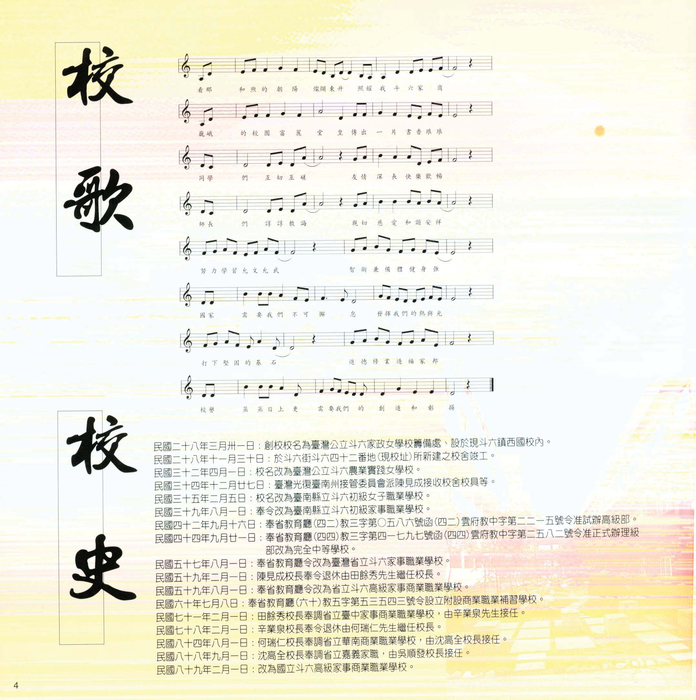 校歌
看那 和煦的朝陽 燦爛東升 照耀我斗六家商
巍峨 的校園富麗 堂皇傳出一片書香琅琅
同學 們 互切互磋 友情深長快樂歡暢
師長 們 諄諄教誨 親切慈愛和諧安祥
努力學習允文允武 智術兼備體健身強
國家 需要我們不可懈 怠 發揮我們的熱與光
打下堅固的基石 進德修業造福家邦
校譽 蒸蒸日上更 需要我們的 創造和彰 揚
校史
民國二十八年三月卅一日：創校校名為臺灣公立斗六家政女學校籌備處、設於現斗六鎮西國校內。
民國二十八年十一月三十日：於斗六街斗六四十二番地(現校址)所新建之校舍竣工。
民國三十二年四月一日：校名改為臺灣公立斗六農業實踐女學校。
民國三十四年十二月廿七日：臺灣光復臺南州接管委員會派陳見成接收校舍校具等。
民國三十五年二月五日：校名改為臺南縣立斗六初級女子職業學校。
民國三十九年八月一日：奉令改為臺南縣立斗六初級家事職業學校。
民國四十二年九月十六日：奉省教育廳(四二)教三字第〇五八六號函(四二)雲府教中字第二二一五號令准試辦高級部。
民國四十四年九月廿一日：奉省教育廳(四四)教三字第四一七九七號函(四四)雲府教中字第二五八二號令准正式辦理級
部改為完全中等學校。
民國五十七年八月一日：奉省教育廳令改為臺灣省立斗六家事職業學校。
民國五十九年二月一日：陳見成校長奉令退休由田餘秀先生繼任校長。
民國五十九年八月一日：奉省教育廳令改為省立斗六高級家事商業職業學校。
民國六十年七月八日：奉省教育廳(六十)教五字第五三五四三號令設立附設商業職業補習學校。
民國七十一年二月一日：田餘秀校長奉調省立臺中家事商業職業學校，由辛業泉先生接任。
民國七十八年二月一日：辛業泉校長奉令退休由何瑞仁先生繼任校長。
民國八十四年八月一日：何瑞仁校長奉調省立華南商業職業學校，由沈高全校長接任。
民國八十八年九月一日：沈高全校長奉調省立嘉義家職，由吳順發校長接任。
民國八十九年二月一日：改為國立斗六高級家事商業職業學校。
4